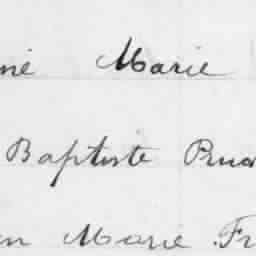 né Marie
Baptiste
en Marie Fr